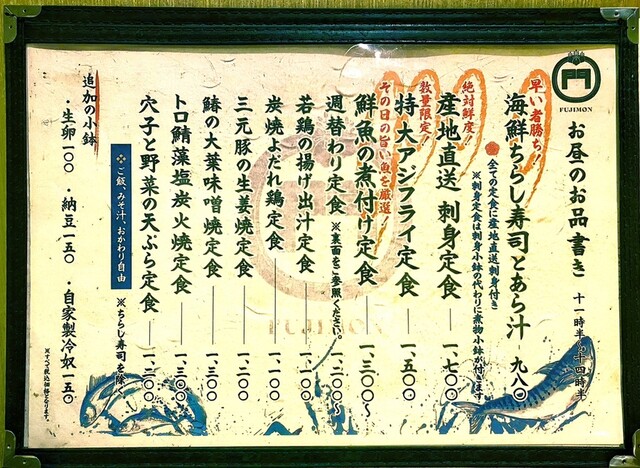 FUJIMON
お昼のお品書き 十一時半〜十四時半
早い者勝ち!
海鮮ちらし寿司とあら汁 九八〇
全ての定食に産地直送刺身付き
※刺身定食は刺身小鉢の代わりに煮物小鉢が付きます
絶対鮮度!
産地直送 刺身定食 一、七〇〇
数量限定!
特大アジフライ定食 一、五〇〇
その日の旨い魚を厳選!
鮮魚の煮付け定食 一、三〇〇〜
週替わり定食 ※裏面をご参照ください。 一、二〇〇〜
若鶏の揚げ出汁定食 一、一〇〇
炭焼よだれ鶏定食 一、一〇〇
三元豚の生姜焼定食 一、二〇〇
鰆の大葉味噌焼定食 一、三〇〇
トロ鯖藻塩炭火焼定食 一、三〇〇
穴子と野菜の天ぷら定食 一、二〇〇
※ご飯、みそ汁、おかわり自由
※ちらし寿司を除く
追加の小鉢
・生卵一〇〇 ・納豆一五〇 ・自家製冷奴一五〇
※すべて税込価格となります。
FUJIMON